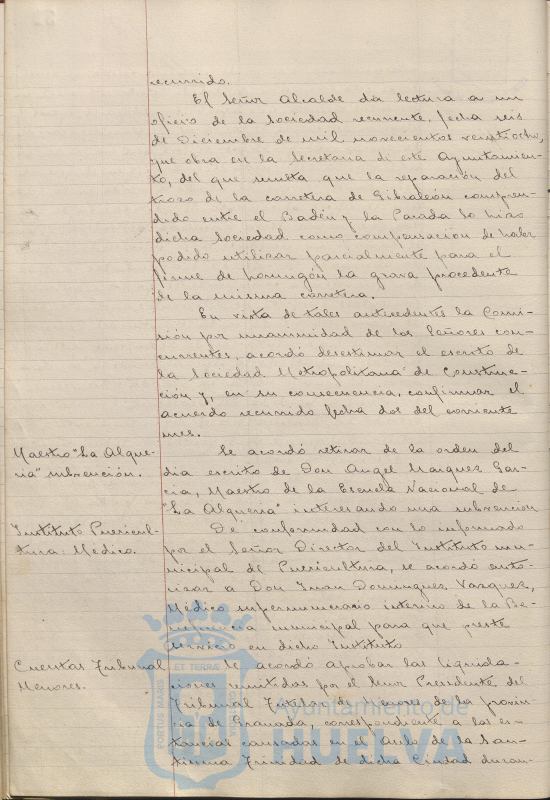 recurrido.
El Señor Alcalde da lectura a un
oficio de la Sociedad recurrente, fecha seis
de Diciembre de mil novecientos veintiocho,
que obra en la Secretaria de este Ayuntamien-
to, del que resulta que la reparación del
trozo de la carretera de Gibraleón compren-
dido entre el Badén y la Parada lo hizo
dicha Sociedad como compensacion de haber
podido utilizar parcialmente para el
firme de hormigón la grava procedente
de la misma carretera.
En vista de tales antecedentes la Comi-
sión por unanimidad de los Señores con-
currentes, acordó desestimar el escrito de
la Sociedad Metropolitana de Construc-
ción y, en su consecuencia, confirmar el
acuerdo recurrido fecha dos del corriente
mes.
Maestro "La Alque-
ria" subvención.
Se acordó retirar de la orden del
dia escrito de Don Angel Marquez Gar-
cia, Maestro de la Escuela Nacional de
"La Alqueria" interesando una subvencion
Instituto Puericul-
tura: Médico.
De conformidad con lo informado
por el Señor Director del Instituto mu-
nicipal de Puericultura, se acordó auto-
rizar a Don Juan Dominguez Vazquez,
Médico supernumerario interino de la Be-
neficencia municipal para que preste
servicio en dicho Instituto
Cuentas Tribunal
Menores.
Se acordó aprobar las liquida-
ciones remitidas por el Iltmo Presidente del
Tribunal Tutelar de Menores de la provin-
cia de Granada, correspondiente a las es-
tancias causadas en el Asilo de la San-
tisima Trinidad de dicha Ciudad duran-
PORTUS MARIS ET TERRAE
Ayuntamiento de
HUELVA